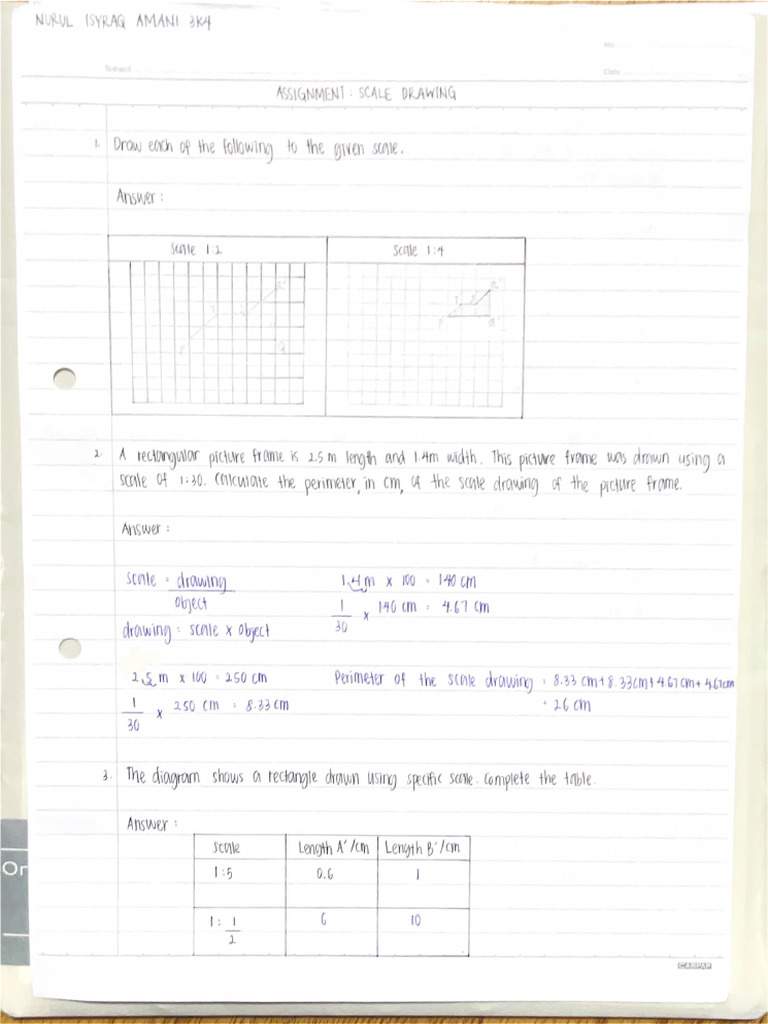 NURUL ISYRAQ AMANI 3K4
No
Subject
Date
ASSIGNMENT : SCALE DRAWING
1. Draw each of the following to the given scale.
Answer :
Scale 1:2
Scale 1:4
P
R
2. A rectangular picture frame is 2.5 m length and 1.4m width. This picture frame was drawn using a
scale of 1:30. Calculate the perimeter, in cm, of the scale drawing of the picture frame.
Answer :
scale = drawing
object
drawing = scale x object
1.4 m x 100 = 140 cm
1
30 x 140 cm = 4.67 cm
2.5 m x 100 = 250 cm
1
30 x 250 cm = 8.33 cm
Perimeter of the scale drawing = 8.33 cm + 8.33cm + 4.67cm + 4.67cm
= 26 cm
3. The diagram shows a rectangle drawn using specific scale. Complete the table.
Answer :
Scale Length A'/cm Length B'/cm
1:5 0.6 1
1 : 1
2
6 10
Or
CAMPAP